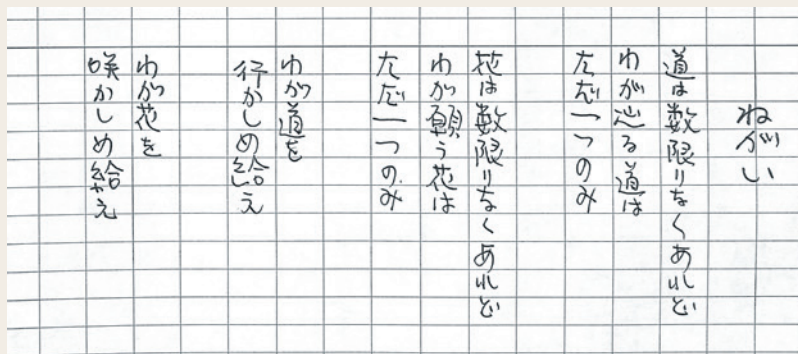 ねがい
道は数限りなくあれど
わが辿る道は
ただ一つのみ
花は数限りなくあれど
わが願う花は
ただ一つのみ
わが道を
行かしめ給え
わが花を
咲かしめ給え